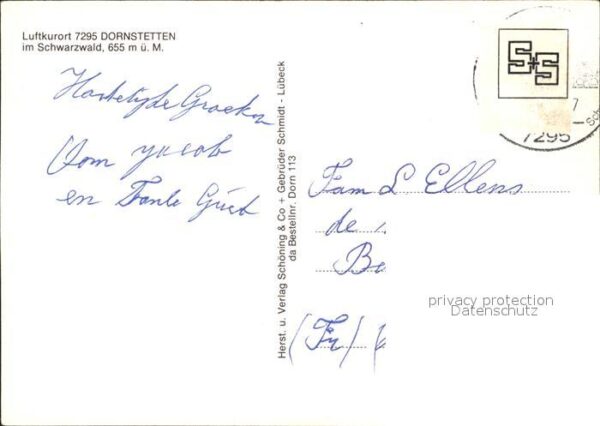 Luftkurort 7295 DORNSTETTEN
im Schwarzwald, 655 m ü. M.
Hartelijke Groeten
Oom yacob
en Tante Guert
Herst. u. Verlag Schöning & Co + Gebrüder Schmidt - Lübeck
da Bestellnr. Dorn 113
S+S
7
7295
Fam L. Ellens
de
Be
(Fr)
privacy protection
Datenschutz